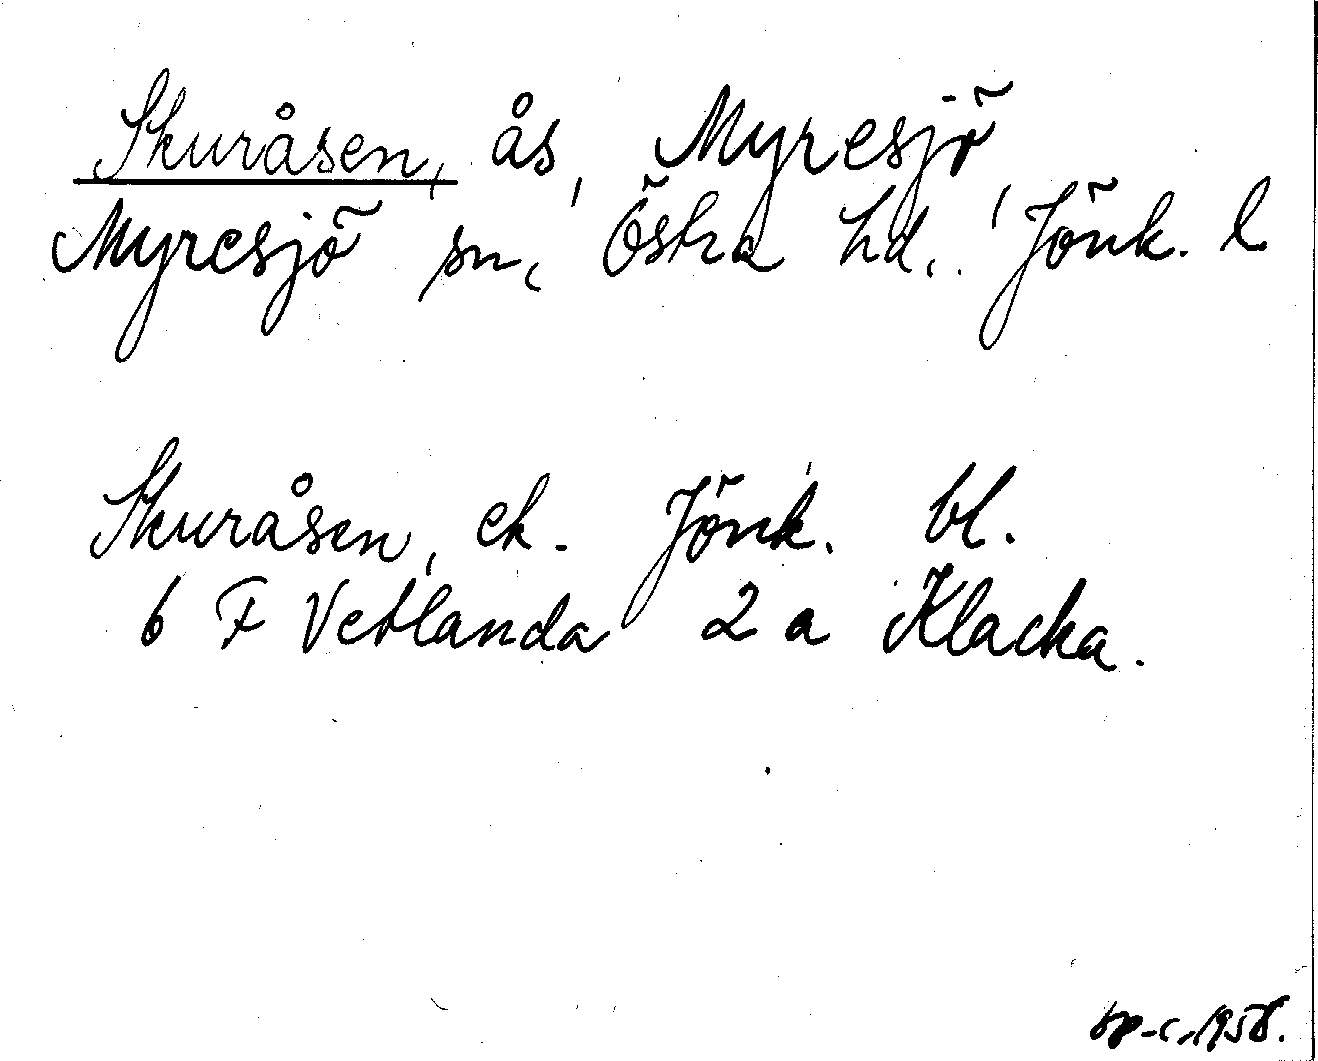 Skuråsen, ås, Myresjö
Myresjö sn, Östra hd, Jönk. l
Skuråsen, ek. Jönk. bl.
6 F Vetlanda 2 a Klacka.
1958.